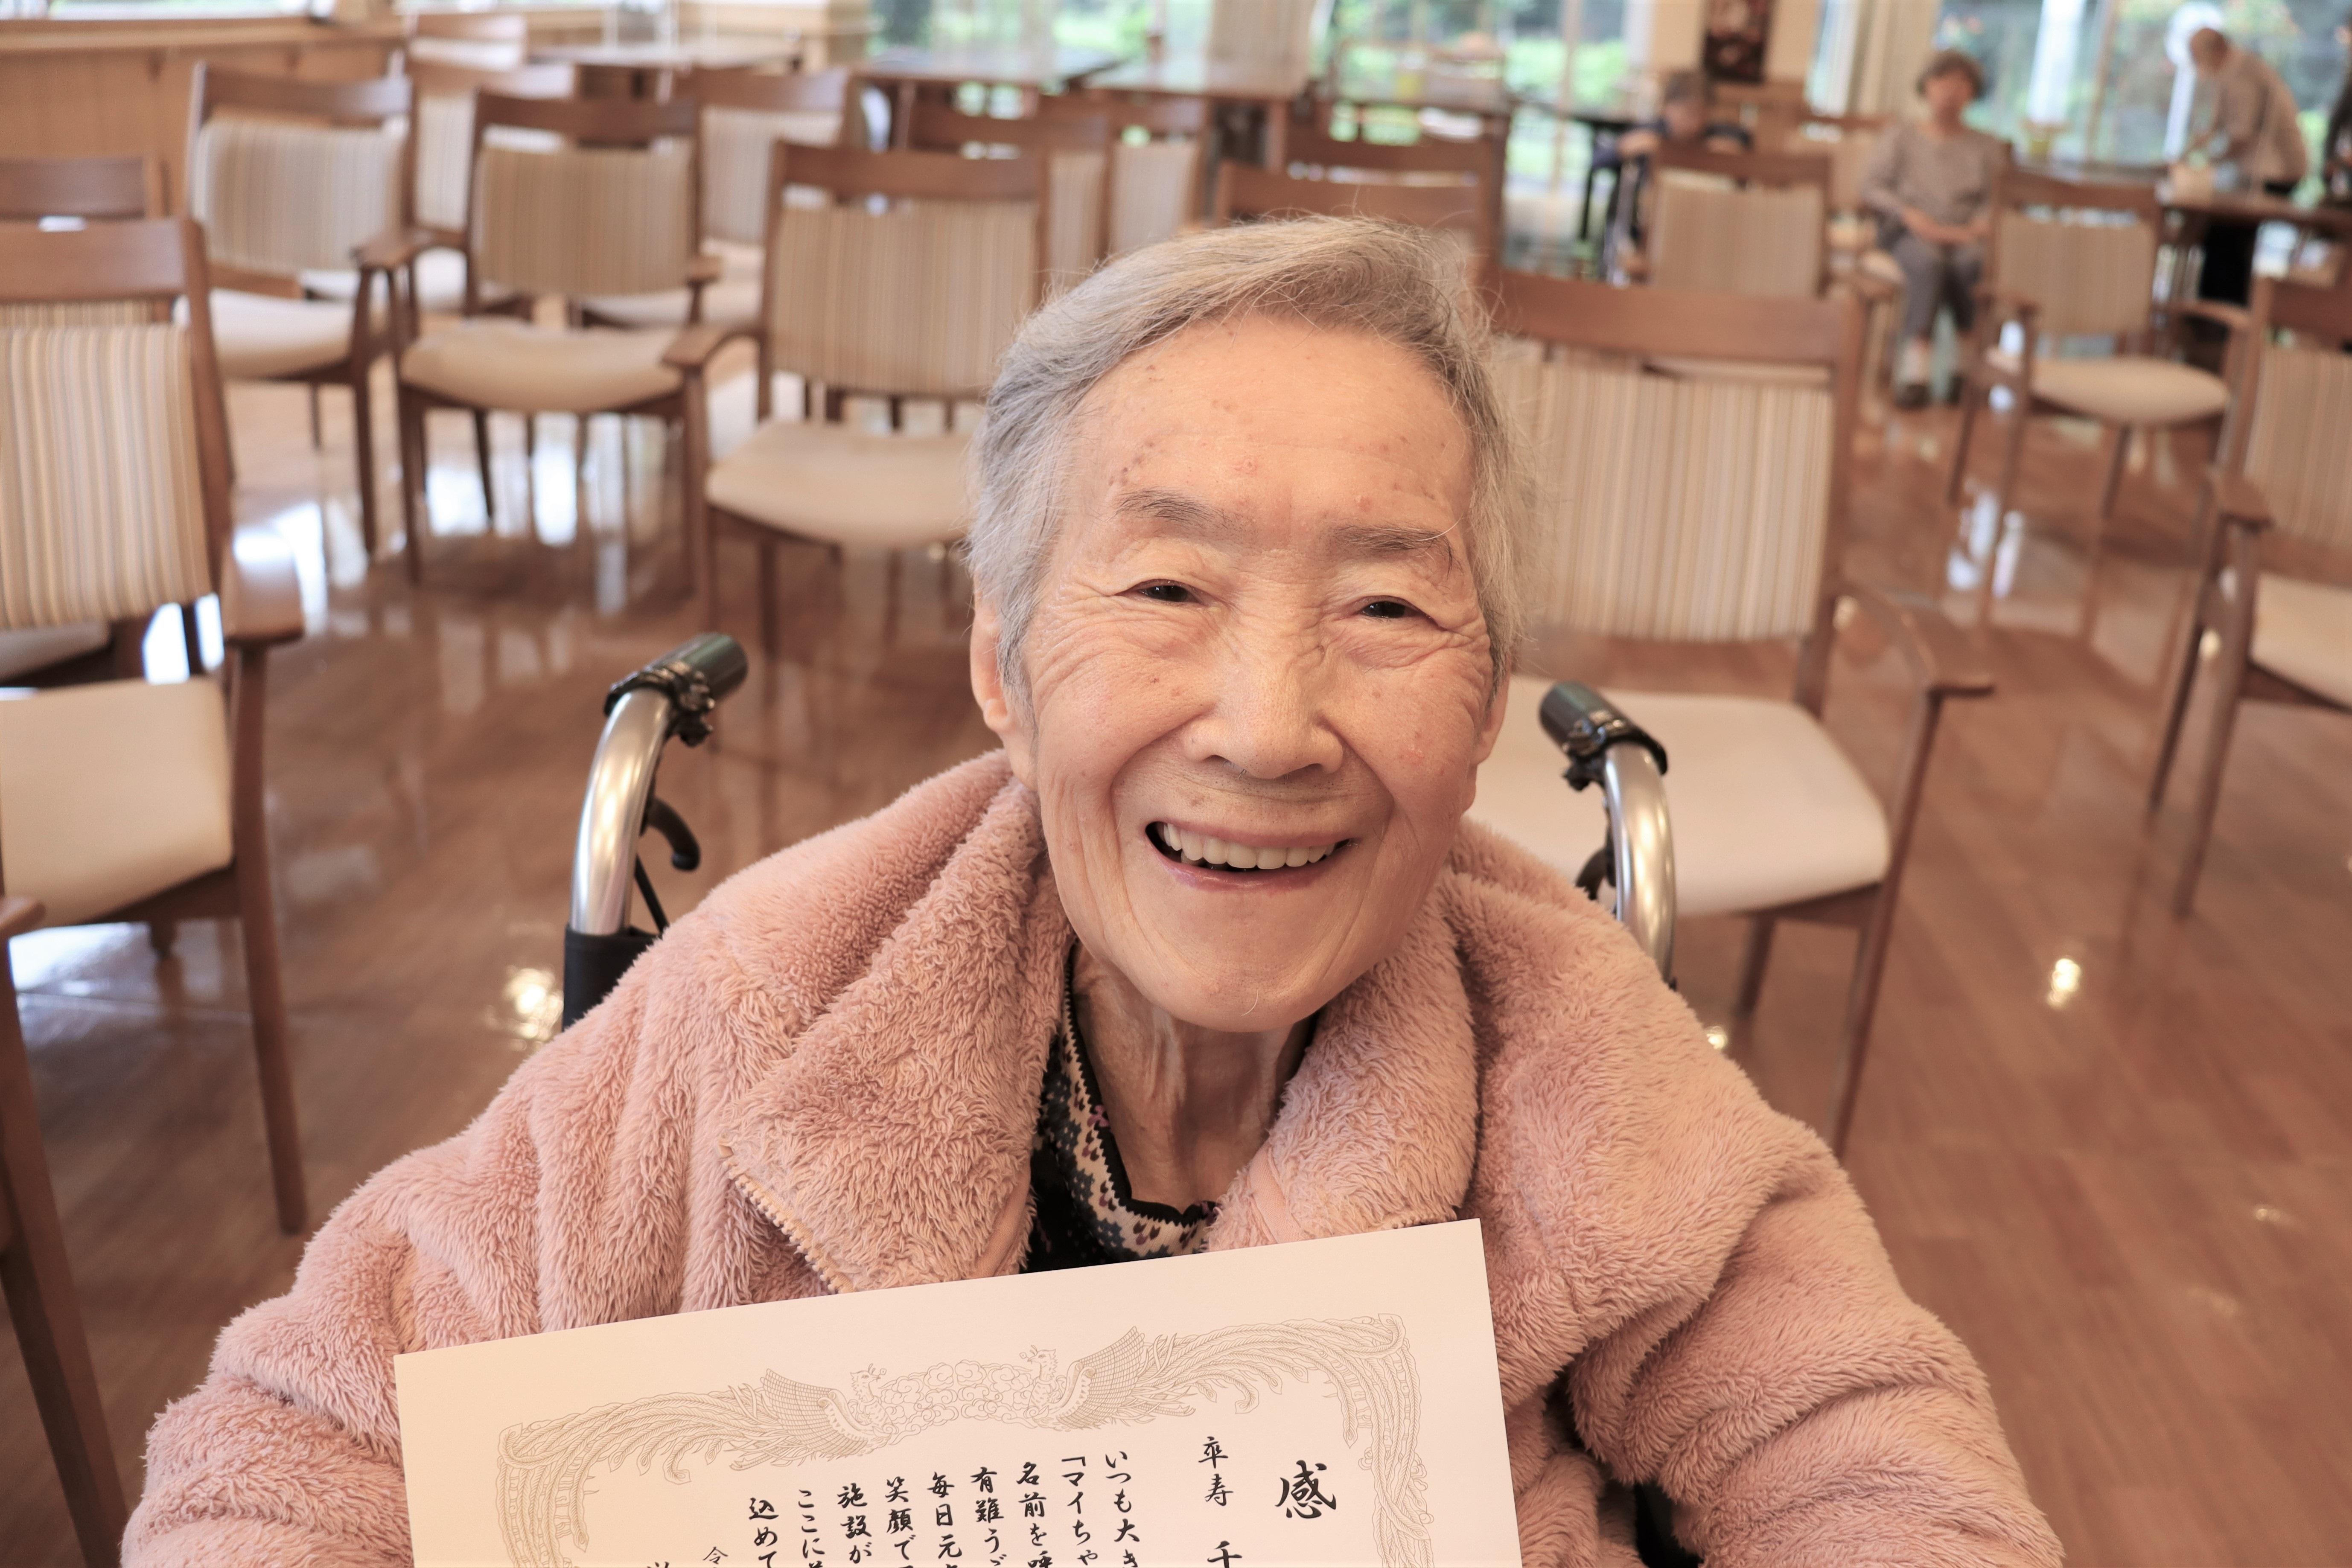 感
卒寿 千
いつも大き
「マイちゃ
名前を呼
有難うご
毎日元
笑顔で
施設が
ここに
込めて
令